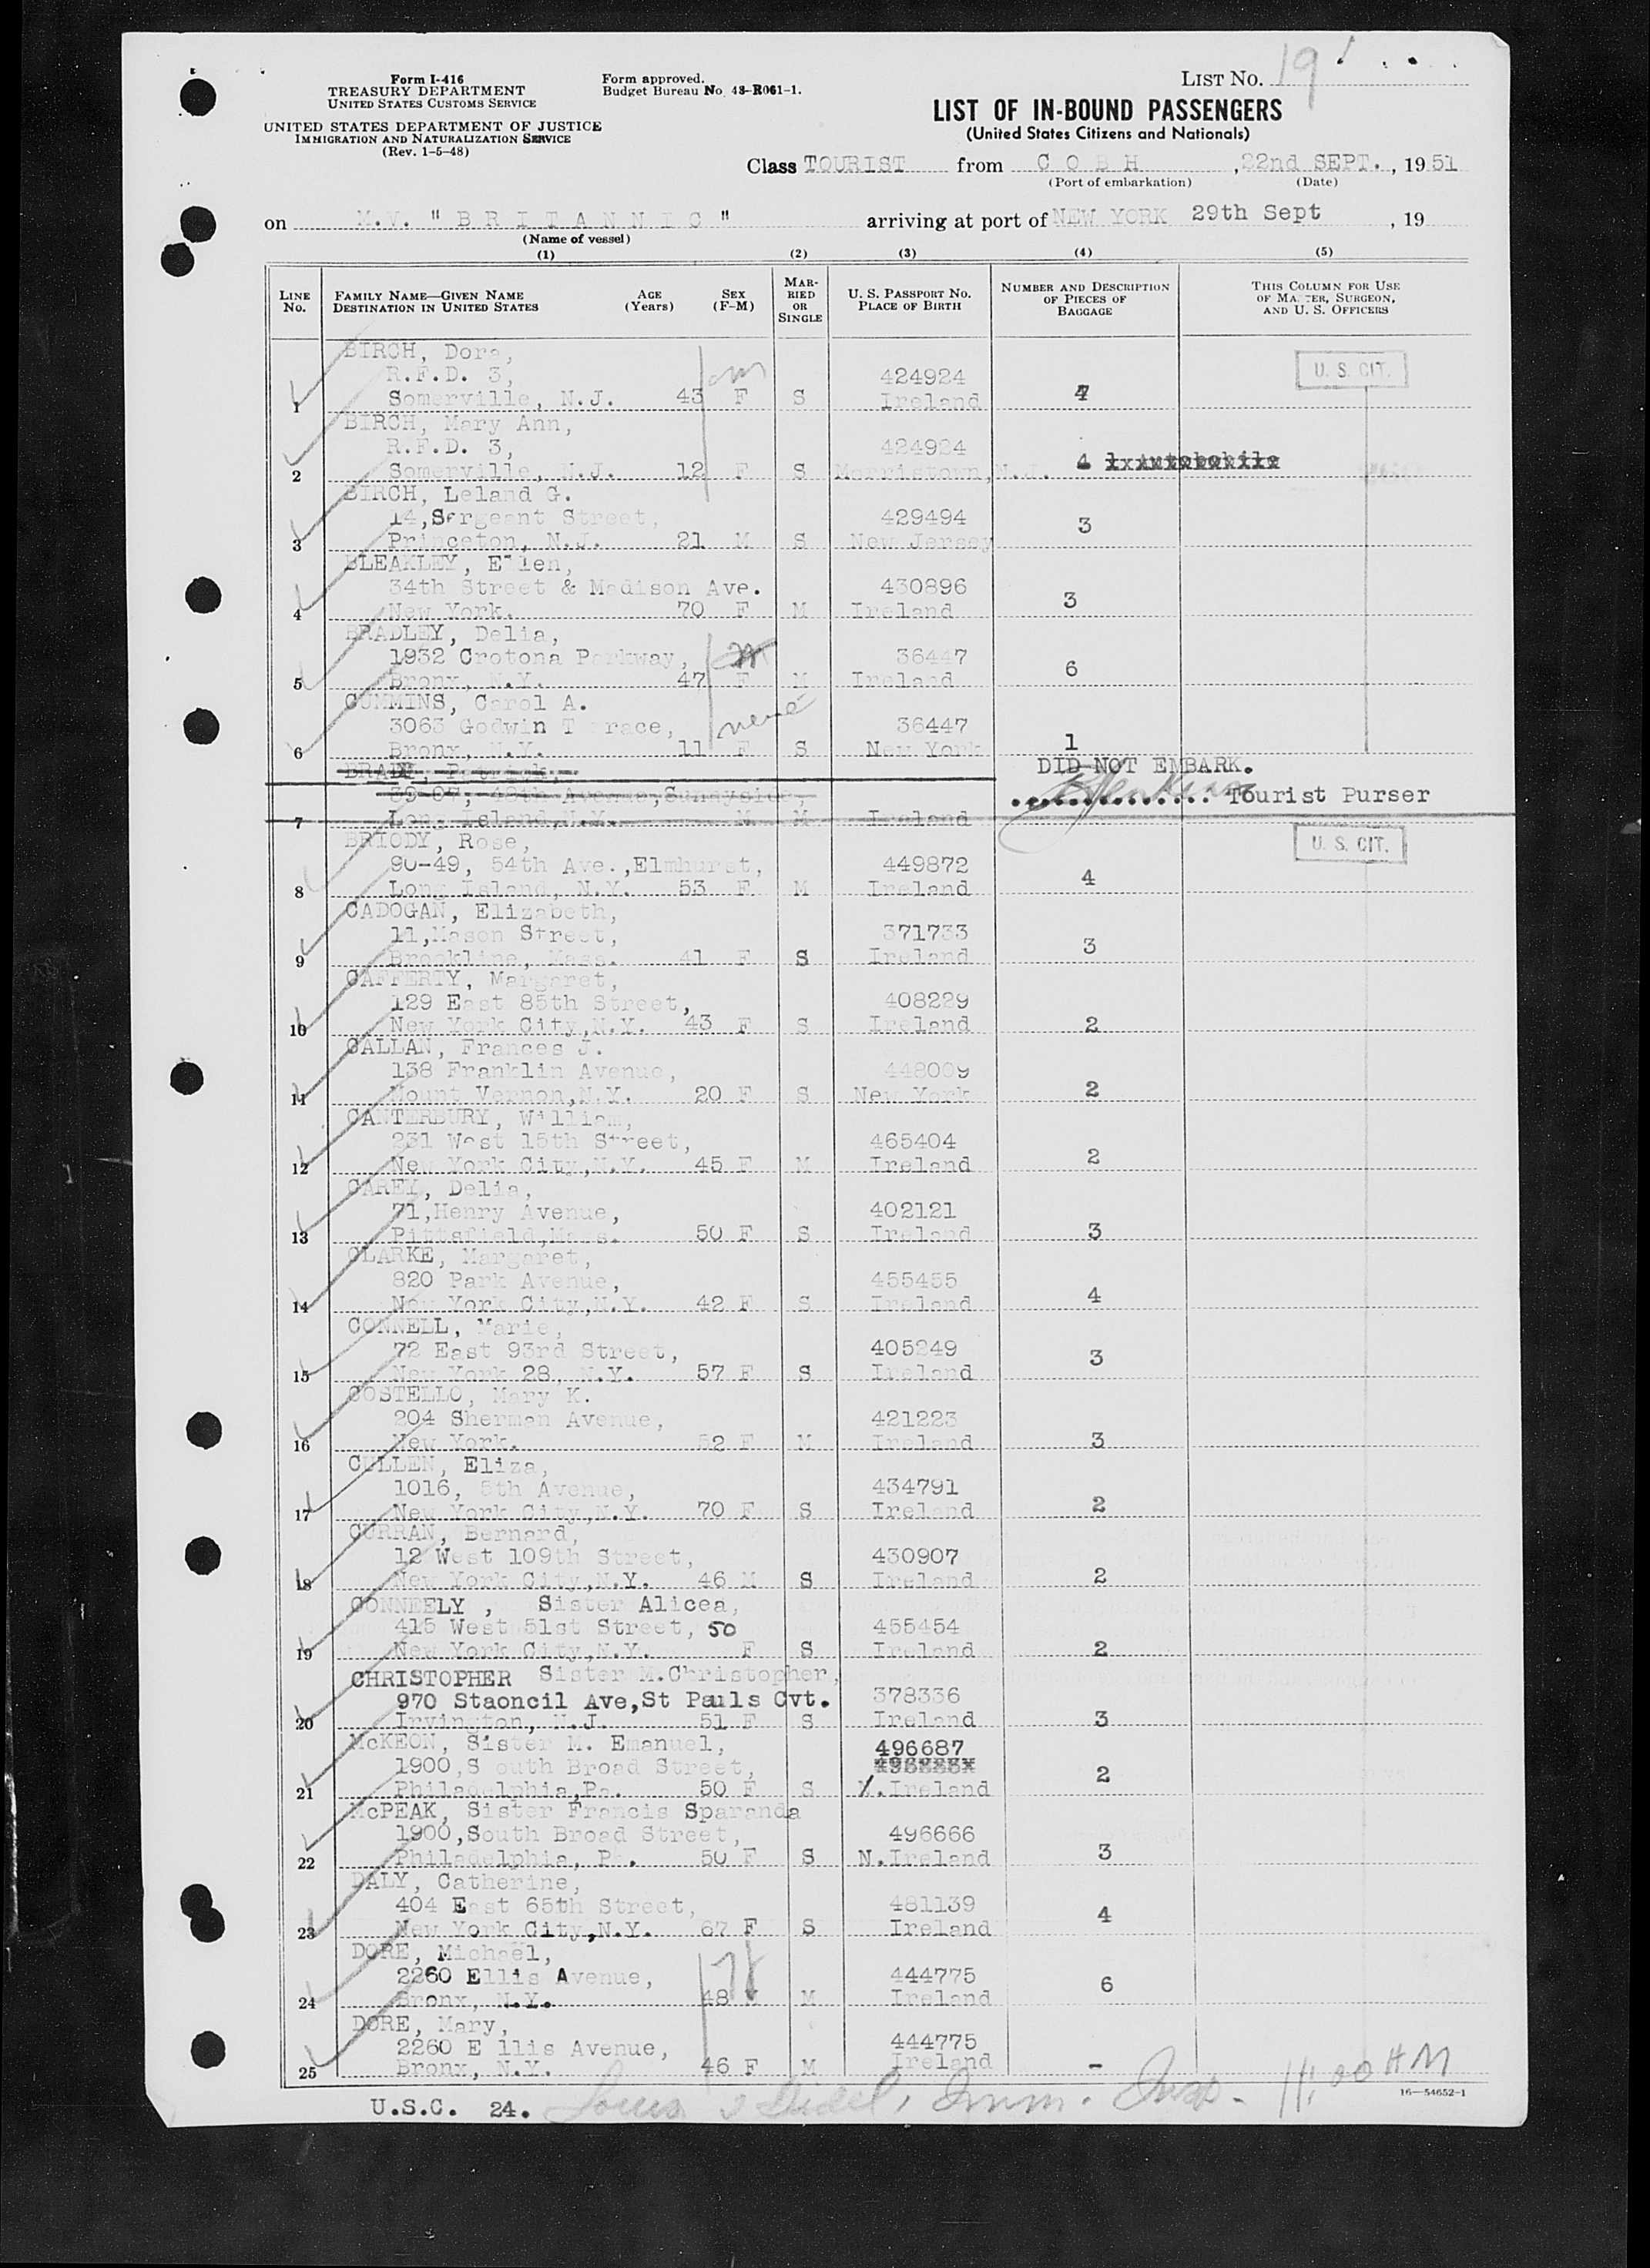 Form I-416
TREASURY DEPARTMENT
UNITED STATES CUSTOMS SERVICE
UNITED STATES DEPARTMENT OF JUSTICE
IMMIGRATION AND NATURALIZATION SERVICE
(Rev. 1-5-48)
Form approved.
Budget Bureau No. 43-R061-1.
LIST NO. 19
LIST OF IN-BOUND PASSENGERS
(United States Citizens and Nationals)
Class TOURIST from C O B H, 22nd SEPT., 1951
(Port of embarkation) (Date)
on M.V. "B R I T A N N I C" arriving at port of NEW YORK 29th Sept, 19
(Name of vessel)
(1) (2) (3) (4) (5)
LINE NO. FAMILY NAME—GIVEN NAME DESTINATION IN UNITED STATES AGE (Years) SEX (F-M) MARRIED OR SINGLE U. S. PASSPORT NO. PLACE OF BIRTH NUMBER AND DESCRIPTION OF PIECES OF BAGGAGE THIS COLUMN FOR USE OF MASTER, SURGEON, AND U. S. OFFICERS
BIRCH, Dora,
R.F.D. 3, 424924 U. S. CIT.
1 Somerville, N.J. 43 F S Ireland 4
BIRCH, Mary Ann,
R.F.D. 3, 424924
2 Somerville, N.J. 12 F S Morristown, N.J. 4
BIRCH, Leland G.
14,Sergeant Street, 429494
3 Princeton, N.J. 21 M S New Jersey 3
BLEAKLEY, Ellen,
34th Street & Madison Ave. 430896
4 New York. 70 F M Ireland 3
BRADLEY, Delia,
1932 Crotona Parkway, 36447
5 Bronx, N.Y. 47 F M Ireland 6
CUMMINS, Carol A.
3063 Godwin T rrace, 36447
6 Bronx, N.Y. 11 F S New York 1
BRADY, Patrick, DID NOT EMBARK.
39-07, 48th Avenue,Sunnyside, Tourist Purser
7 Long Island,N.Y. M M Ireland
BRIODY, Rose, U. S. CIT.
90-49, 54th Ave.,Elmhurst, 449872
8 Long Island, N.Y. 53 F M Ireland 4
CADOGAN, Elizabeth,
11,Mason Street, 371733
9 Brookline, Mass. 41 F S Ireland 3
CAFFERTY, Margaret,
129 East 85th Street, 408229
10 New York City,N.Y. 43 F S Ireland 2
CALLAN, Frances J.
138 Franklin Avenue, 448009
11 Mount Vernon,N.Y. 20 F S New York 2
CANTERBURY, William,
231 West 15th Street, 465404
12 New York City,N.Y. 45 F M Ireland 2
CAREY, Delia,
71,Henry Avenue, 402121
13 Pittsfield,Mass. 50 F S Ireland 3
CLARKE, Margaret,
820 Park Avenue, 455455
14 New York City,N.Y. 42 F S Ireland 4
CONNELL, Marie,
72 East 93rd Street, 405249
15 New York 28, N.Y. 57 F S Ireland 3
COSTELLO, Mary K.
204 Sherman Avenue, 421223
16 New York. 52 F M Ireland 3
CULLEN, Eliza,
1016, 5th Avenue, 434791
17 New York City,N.Y. 70 F S Ireland 2
CURRAN, Bernard,
12 West 109th Street, 430907
18 New York City,N.Y. 46 M S Ireland 2
CONNEELY , Sister Alicea,
415 West 51st Street, 50 455454
19 New York City,N.Y. F S Ireland 2
CHRISTOPHER Sister M.Christopher,
970 Staoncil Ave,St Pauls Cvt. 378336
20 Irvington, N.J. 51 F S Ireland 3
McKEON, Sister M. Emanuel, 496687
1900,S outh Broad Street,
21 Philadelphia,Pa. 50 F S N.Ireland 2
McPEAK, Sister Francis Sparanda
1900,South Broad Street, 496666
22 Philadelphia, Pa. 50 F S N.Ireland 3
DALY, Catherine,
404 East 65th Street, 481139
23 New York City,N.Y. 67 F S Ireland 4
DORE, Michael,
2260 Ellis Avenue, 444775
24 Bronx, N.Y. 48 M M Ireland 6
DORE, Mary,
2260 E llis Avenue, 444775
25 Bronx, N.Y. 46 F M Ireland -
16—54652-1
U.S.C. 24. Imm. Insp. 11:00 AM